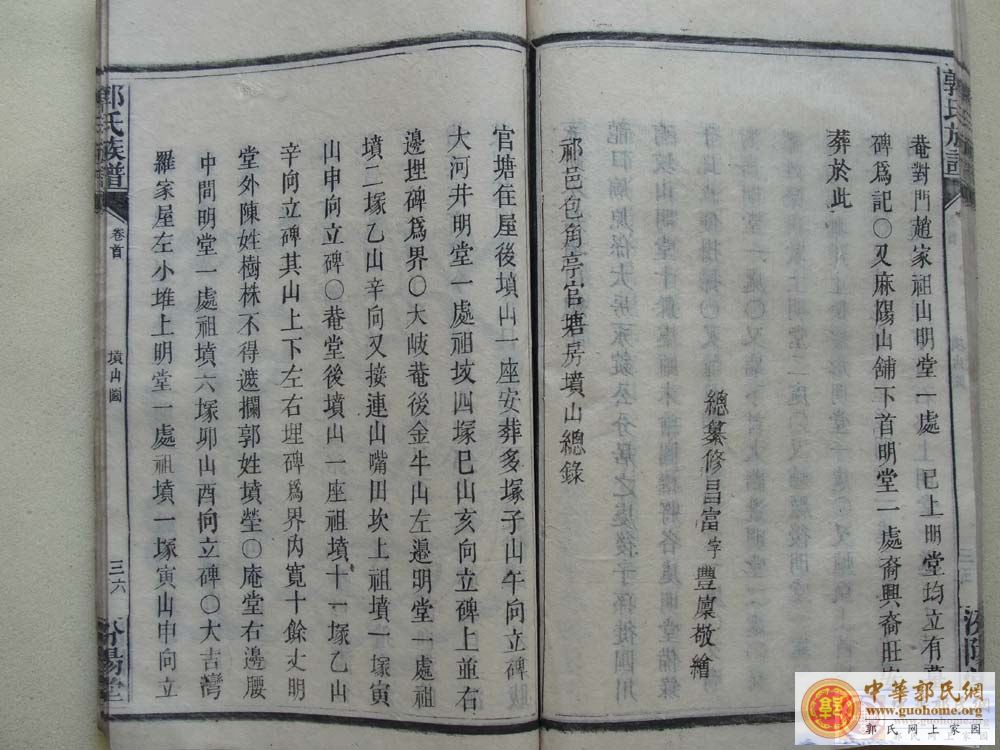 郭氏族譜
菴對門趙家祖山明堂一處 已上明堂均立有
碑爲記〇又麻陽山舖下首明堂一處裔興裔旺
葬於此
總纂修昌富字豐廩敬繪
祁邑包角亭官塘房墳山總錄
官塘住屋後墳山一座安葬多塚子山午向立碑
大河井明堂一處祖坟四塚巳山亥向立碑上並右
邊埋碑爲界〇大岐菴後金牛山左邊明堂一處祖
墳二塚乙山辛向又接連山嘴田坎上祖墳一塚寅
山申向立碑〇菴堂後墳山一座祖墳十一塚乙山
辛向立碑其山上下左右埋碑爲界內寬十餘丈明
堂外陳姓樹株不得遮攔郭姓墳塋〇庵堂右邊腰
中間明堂一處祖墳六塚卯山酉向立碑〇大古灣
羅家屋左小堆上明堂一處祖墳一塚寅山申向立
郭氏族譜
卷首
墳山圖
三六
汾陽堂
中華郭氏網
www.guohome.org
郭氏网上家园